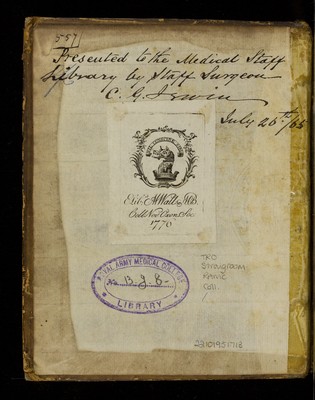 557
Presented to the Medical Staff
Library by Staff Surgeon
C. G. Irwin
July 26th/65
M Wall, M.B.
Coll. Nov. Oxon. Soc.
1776
ROYAL ARMY MEDICAL COLLEGE
No B. J. 8.
LIBRARY
Strongroom
Coll.